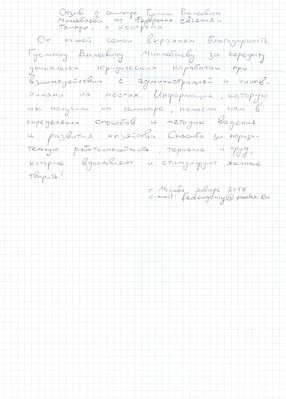 Отзыв о семинаре Густы Валевича
Миннебаева от Федоренко Евгения
Тамары, г. Кострома
От нашей семьи выражаем благодарность
Густаму Валевичу Миннебаеву за передачу
уникальных юридических наработок при
взаимодействии с администрацией и чинов.
никами на местах. Информация, которую
мы получили на семинаре, помогла нам в
определении способов и методик ведения
и развития хозяйства. Спасибо за
тельную работоспособность, терпение и труд,
которые вдохновляют и стимулируют желание
творить!
г. Москва, январь 2017
e-mail: